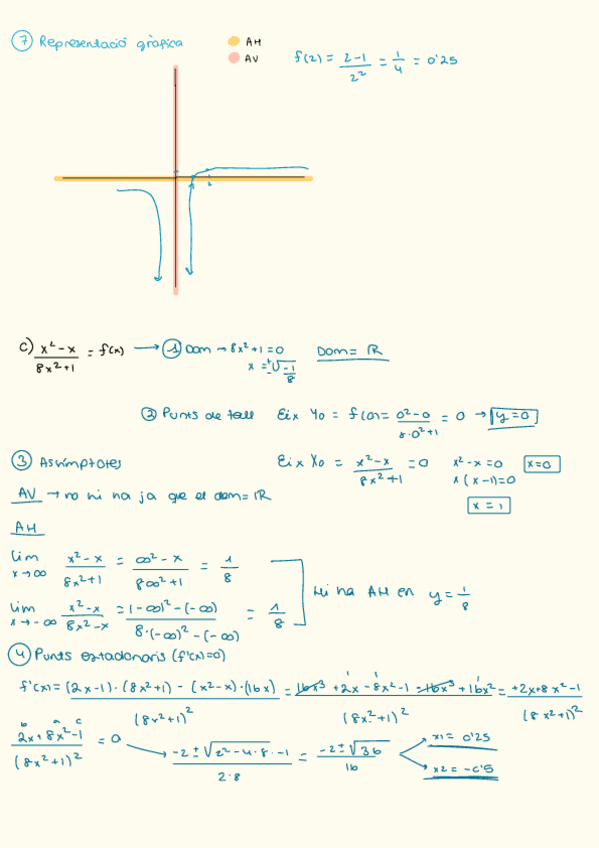 7 Representació gràfica
AH
AV
f(2) = 2-1/2² = 1/4 = 0'25
c) x²-x/8x²+1 = f(x) → 1 Dom → 8x²+1=0 Dom= ℝ
x = ±√-1/8
2 Punts de tall Eix Yo = f(0) = 0²-0/8·0²+1 = 0 → y=0
3 Asímptotes
Eix Xo = x²-x/8x²+1 = 0 x²-x=0 x=0
x(x-1)=0
x = 1
AV → no hi ha ja que el dom= ℝ
AH
lim x→∞ x²-x/8x²+1 = ∞²-x/8∞²+1 = 1/8
Hi ha AH en y = 1/8
lim x→-∞ x²-x/8x²-x = (-∞)²-(-∞)/8·(-∞)²-(-∞) = 1/8
4 Punts estacionaris (f'(x)=0)
f'(x) = (2x-1)·(8x²+1) - (x²-x)·(16x)/(8x²+1)² = 16x³+2x-8x²-1-16x³+16x²/(8x²+1)² = +2x+8x²-1/(8x²+1)²
b a c
2x+8x²-1/(8x²+1)² = 0 → -2±√2²-4·8·-1/2·8 = -2±√36/16
x1 = 0'25
x2 = -0'5